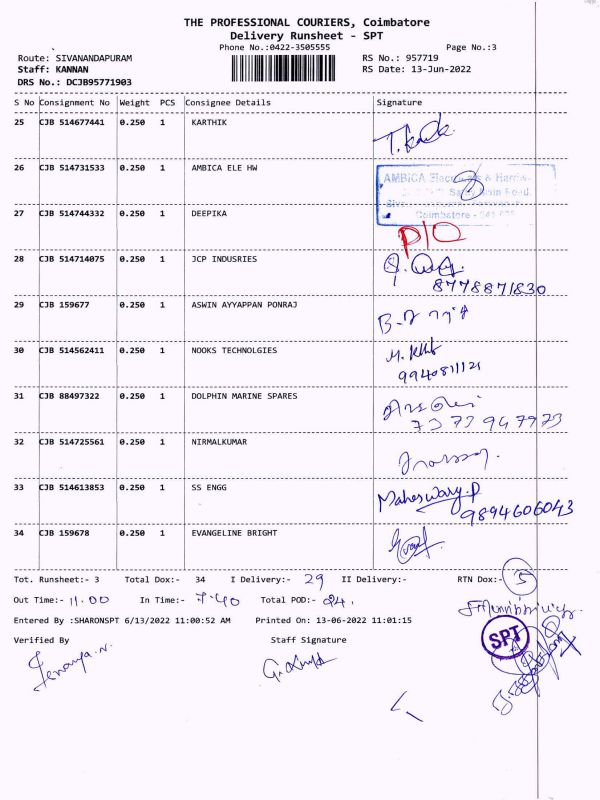 THE PROFESSIONAL COURIERS, Coimbatore
Delivery Runsheet - SPT
Phone No.:0422-3505555 Page No.:3
Route: SIVANANDAPURAM RS No.: 957719
Staff: KANNAN RS Date: 13-Jun-2022
DRS No.: DCJB95771903
S No Consignment No Weight PCS Consignee Details Signature
25 CJB 514677441 0.250 1 KARTHIK
26 CJB 514731533 0.250 1 AMBICA ELE HW
AMBICA
Coimbatore
27 CJB 514744332 0.250 1 DEEPIKA
28 CJB 514714075 0.250 1 JCP INDUSRIES
8778871830
29 CJB 159677 0.250 1 ASWIN AYYAPPAN PONRAJ
30 CJB 514562411 0.250 1 NOOKS TECHNOLGIES
31 CJB 88497322 0.250 1 DOLPHIN MARINE SPARES
7373947973
32 CJB 514725561 0.250 1 NIRMALKUMAR
33 CJB 514613853 0.250 1 SS ENGG Maheswary.P
9894606043
34 CJB 159678 0.250 1 EVANGELINE BRIGHT
Tot. Runsheet:- 3 Total Dox:- 34 I Delivery:- 29 II Delivery:- RTN Dox:- 5
Out Time:- 11.00 In Time:- 7.40 Total POD:-
Entered By :SHARONSPT 6/13/2022 11:00:52 AM Printed On: 13-06-2022 11:01:15
Verified By Staff Signature
SPT